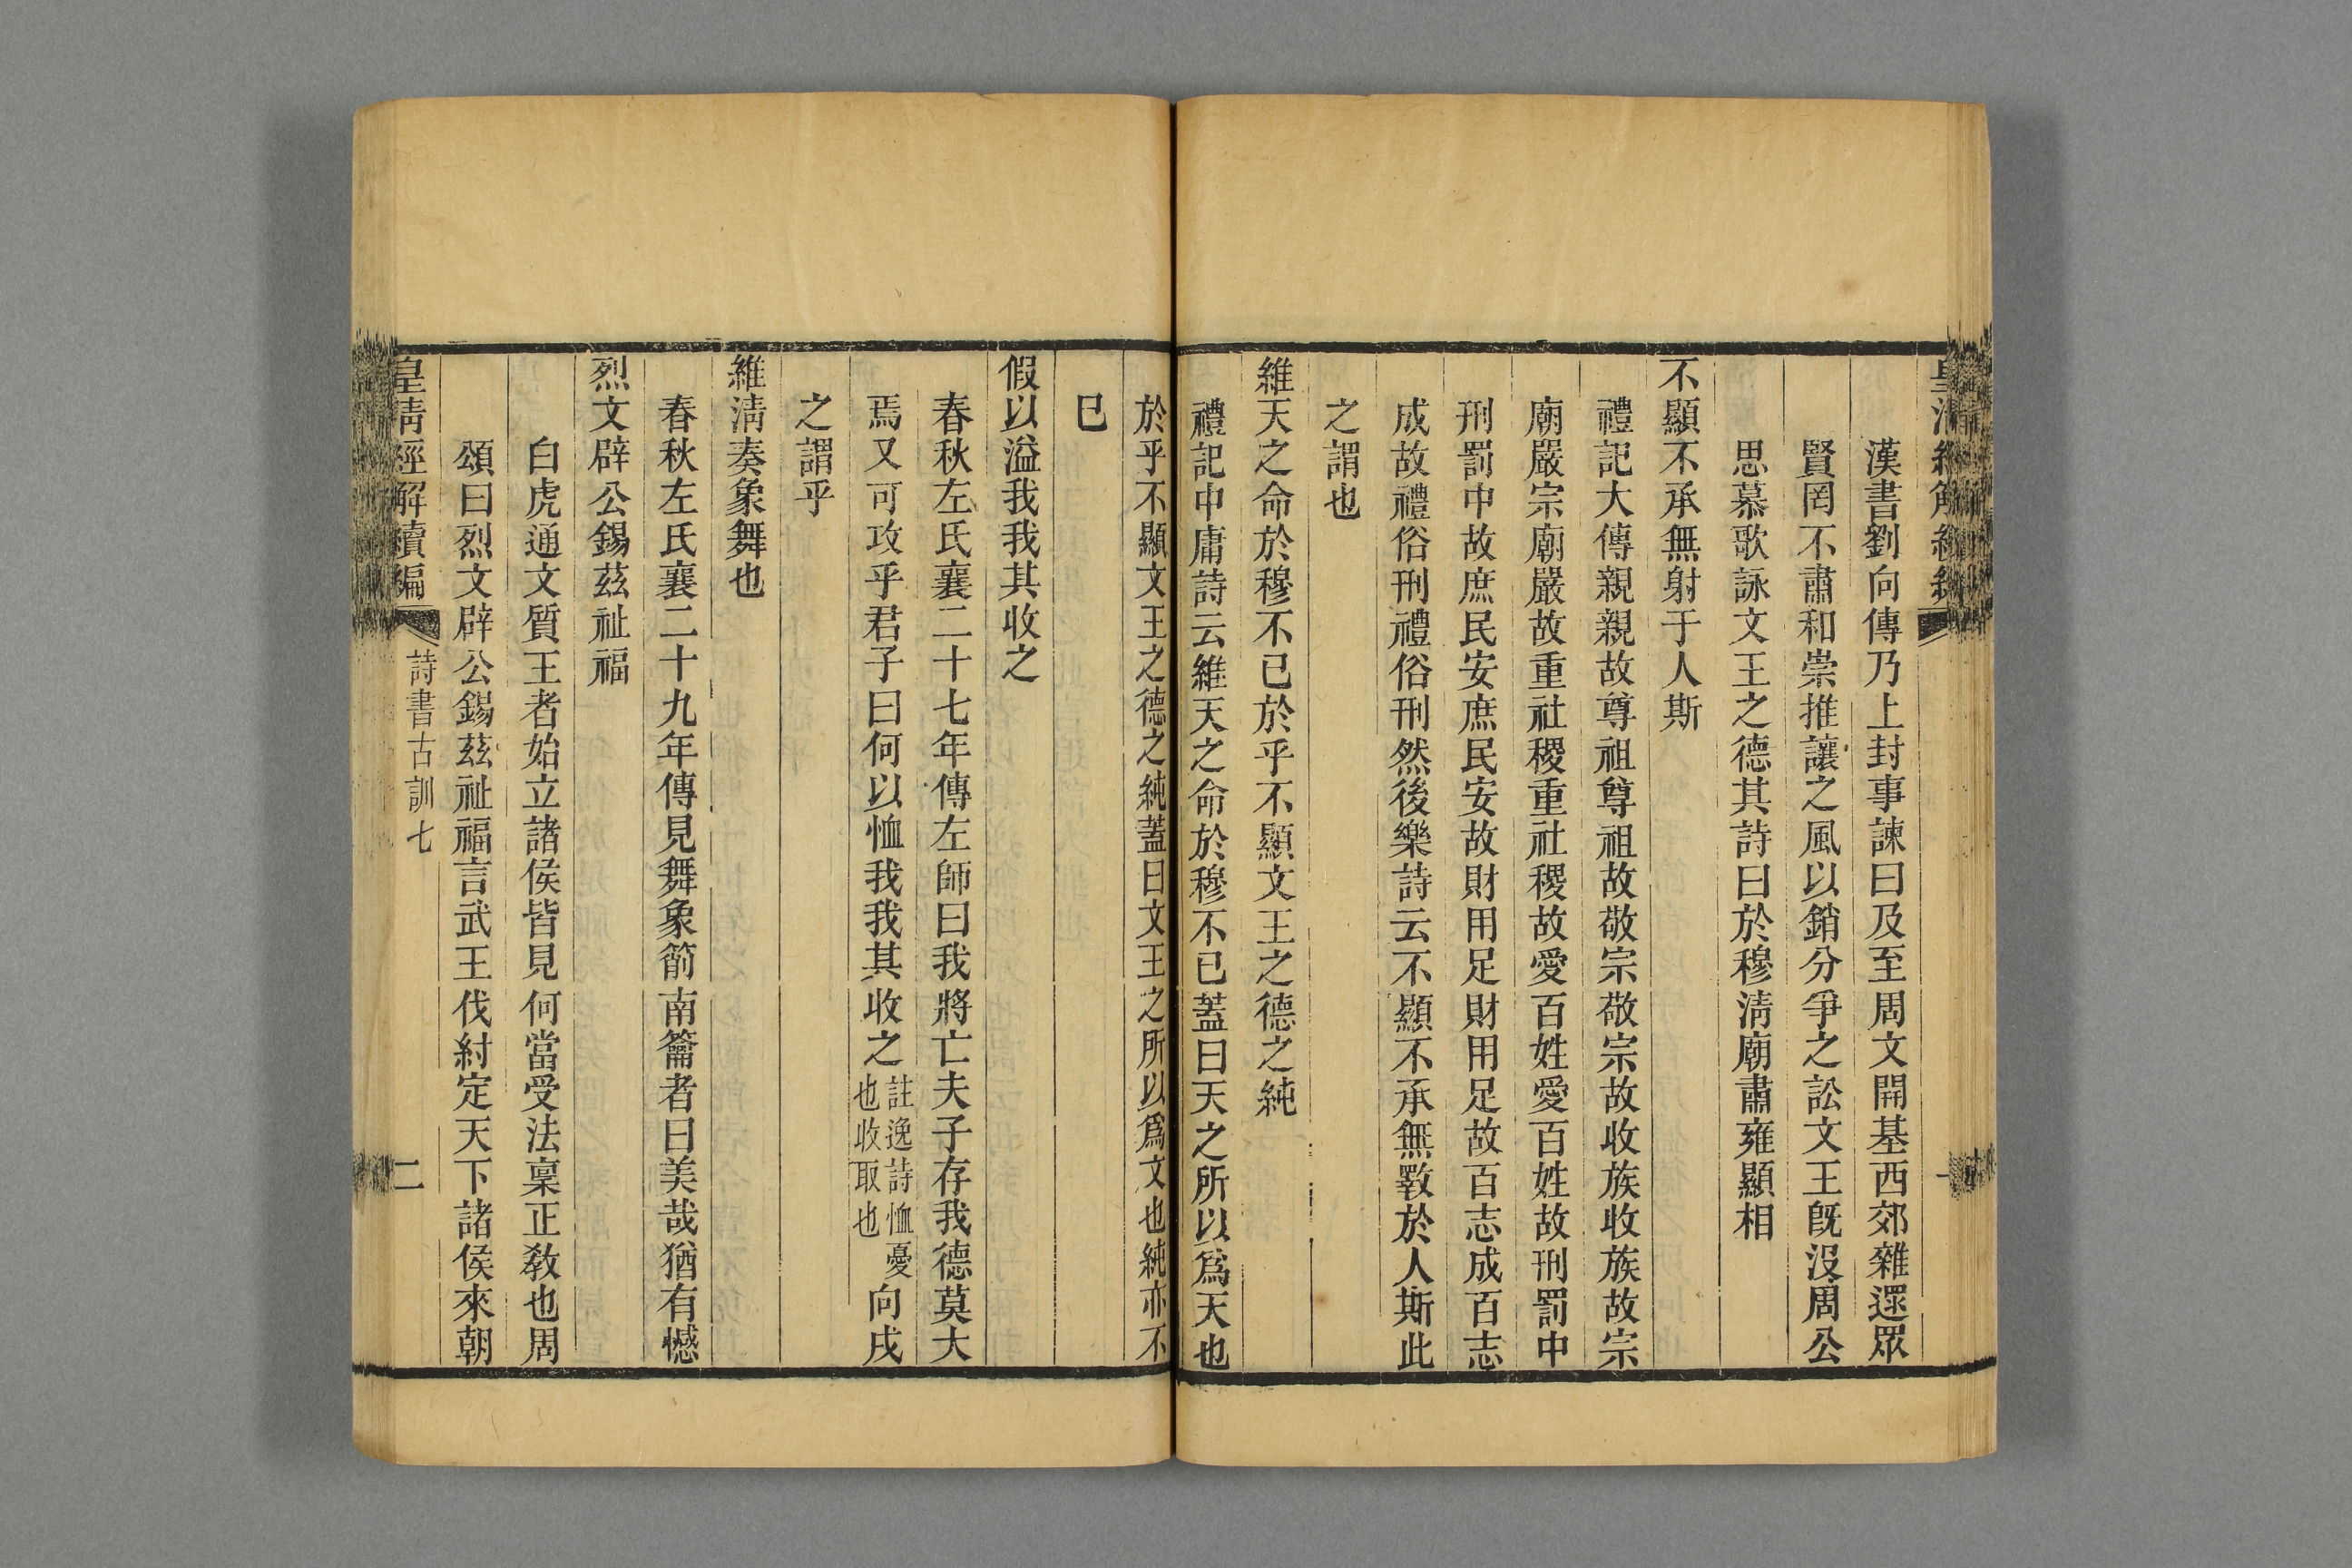 漢書劉向傳乃上封事諫曰及至周文開基西郊雜遝眾
賢罔不肅和崇推讓之風以銷分爭之訟文王旣沒周公
思慕歌詠文王之德其詩曰於穆淸廟肅雍顯相
不顯不承無射于人斯
禮記大傳親親故尊祖尊祖故敬宗敬宗故收族收族故宗
廟嚴宗廟嚴故重社稷重社稷故愛百姓愛百姓故刑罰中
刑罰中故庶民安庶民安故財用足財用足故百志成百志
成故禮俗刑禮俗刑然後樂詩云不顯不承無斁於人斯此
之謂也
維天之命於穆不已於乎不顯文王之德之純
禮記中庸詩云維天之命於穆不已蓋曰天之所以爲天也
於乎不顯文王之德之純蓋曰文王之所以爲文也純亦不
已
假以溢我我其收之
春秋左氏襄二十七年傳左師曰我將亡夫子存我德莫大
焉又可攻乎君子曰何以恤我我其收之註逸詩恤憂也收取也向戌
之謂乎
維淸奏象舞也
春秋左氏襄二十九年傳見舞象箾南籥者曰美哉猶有憾
烈文辟公錫茲祉福
白虎通文質王者始立諸侯皆見何當受法稟正敎也周
頌曰烈文辟公錫茲祉福言武王伐紂定天下諸侯來朝
皇淸經解續編
詩書古訓七
二